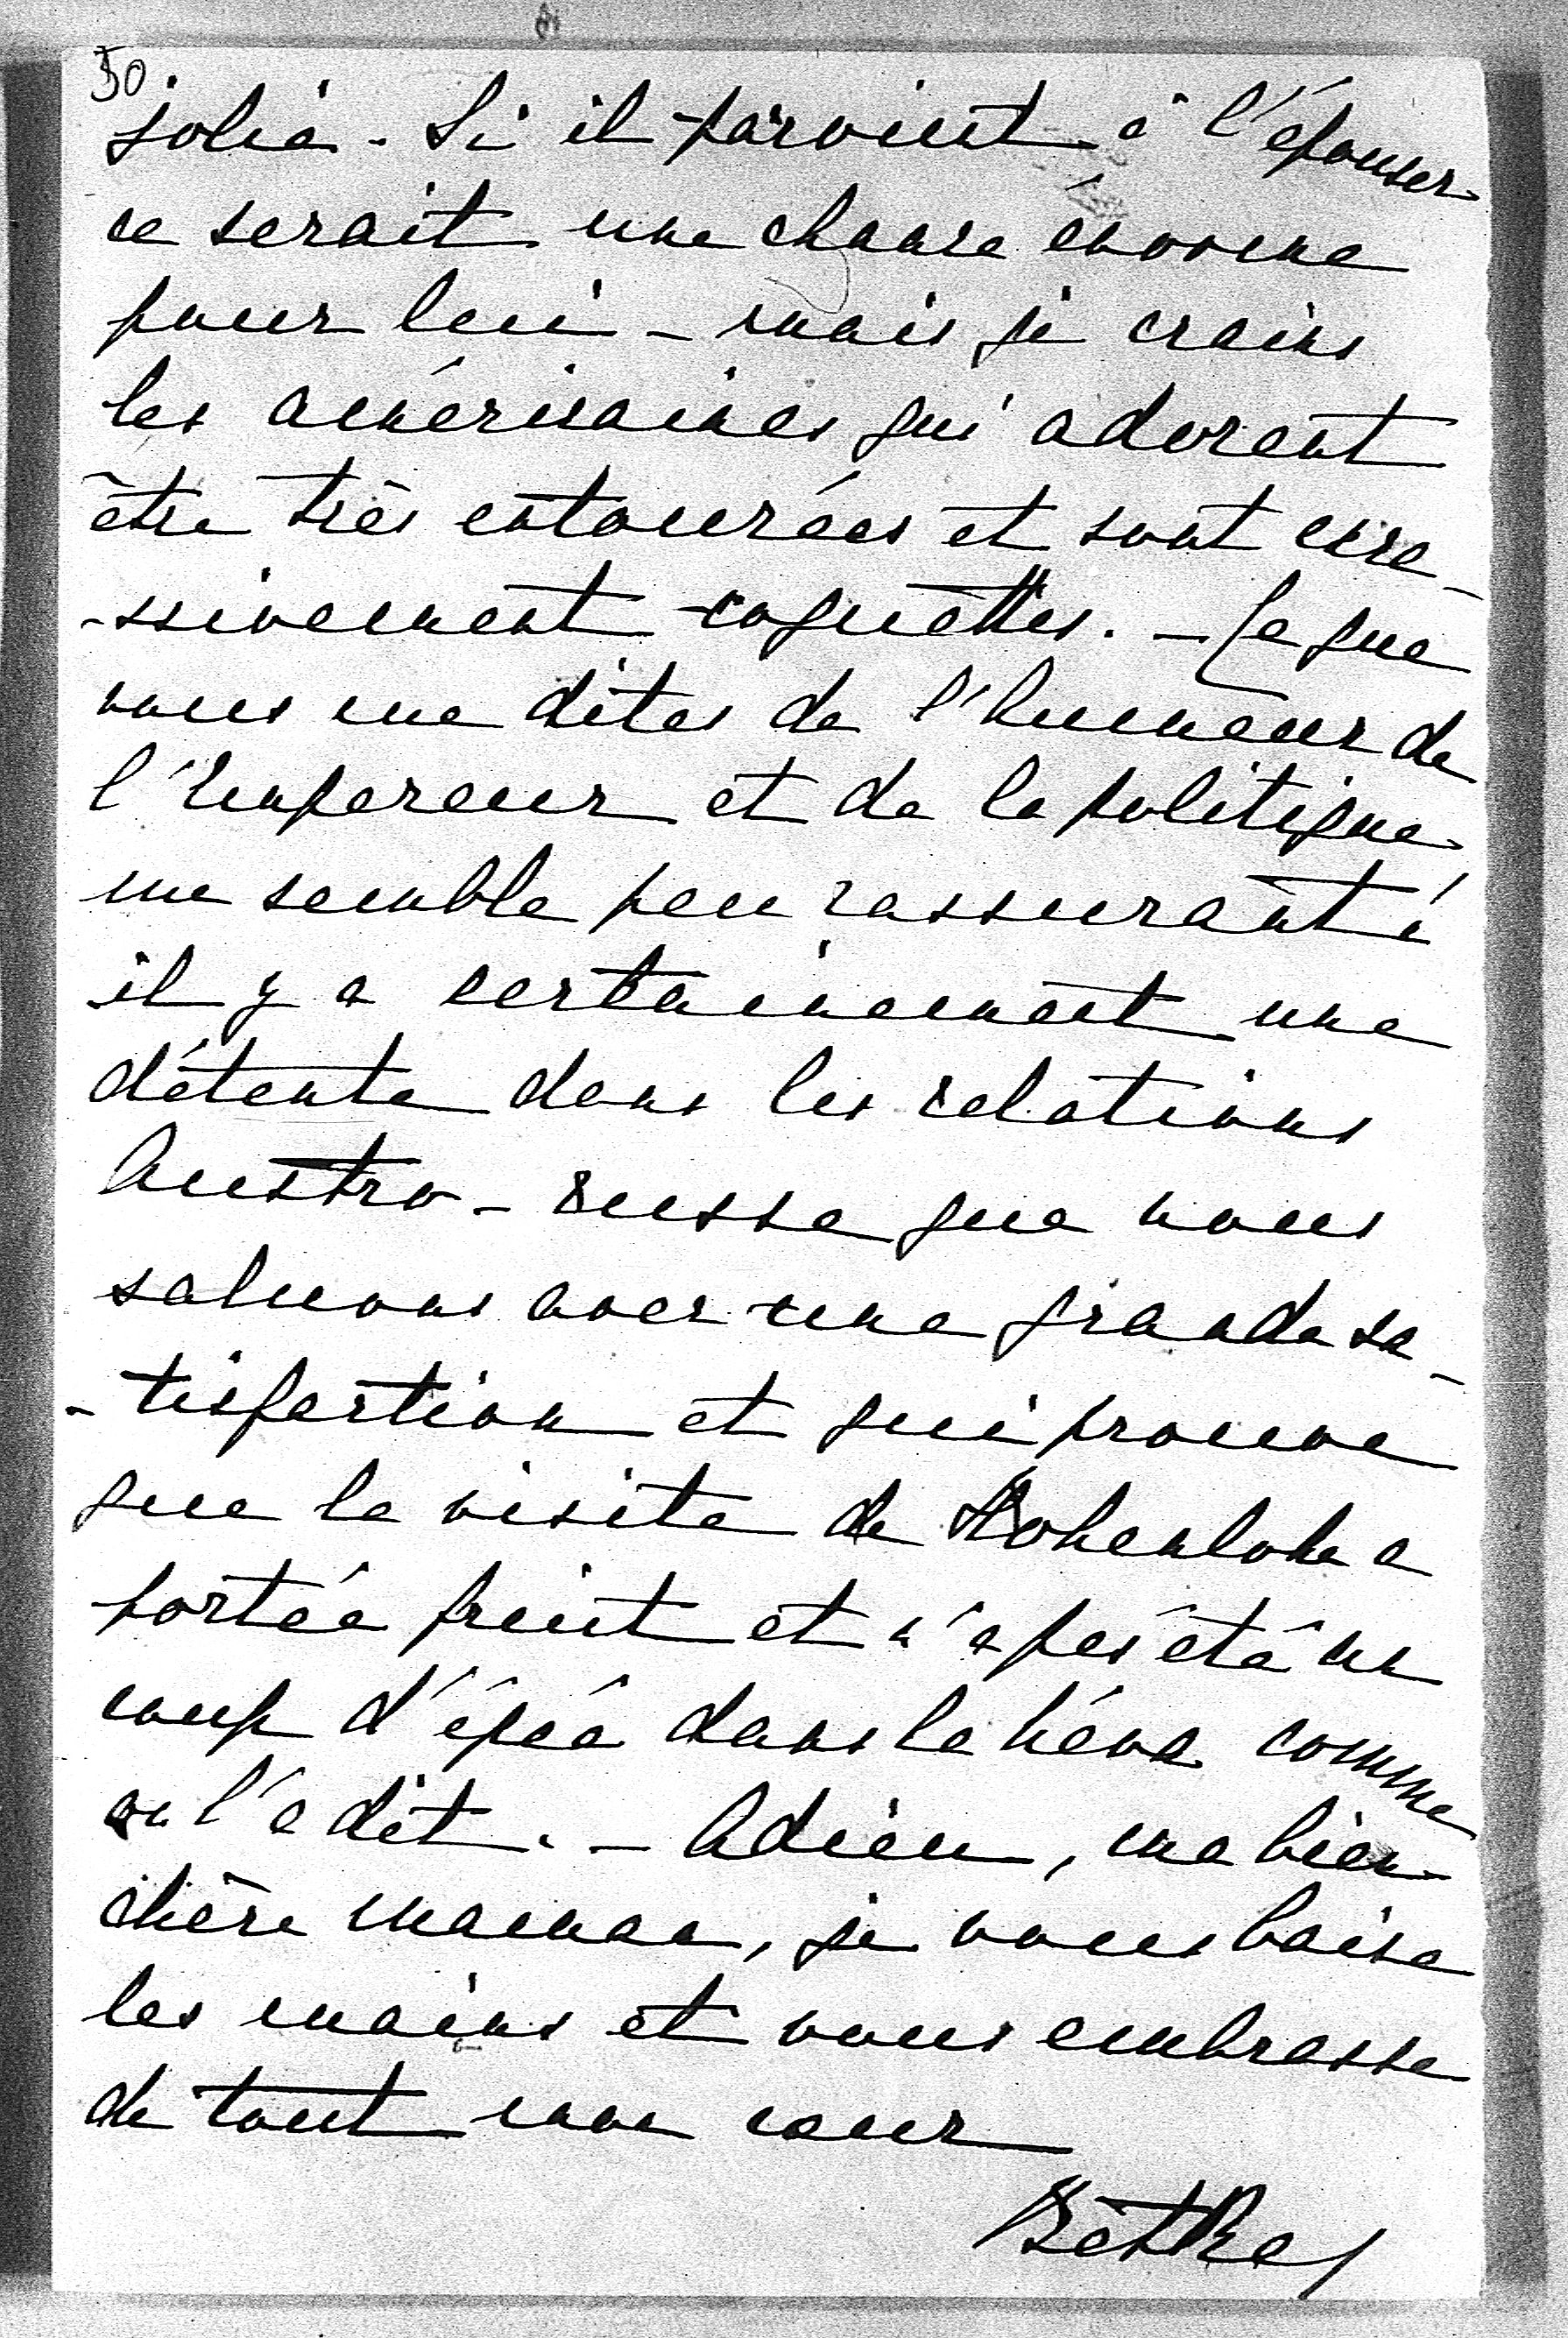 50
jolie. Si il parvient à l'épouser
ce serait une chance énorme
pour lui – mais je crains
les américaines qui adorent
être très entourées et sont exce-
-ssivement coquettes. – Ce que
vous me dites de l'humeur de
l'Empereur et de la politique
me semble peu rassurant ;
il y a certainement une
détente dans les relations
Austro-russe que nous
saluons avec une grande sa-
-tisfaction et qui prouve
que la visite de Hohenlohe a
portée fruit et n'a pas été un
coup d'épée dans le Rêve comme
on l'a dit. – Adieu, ma bien
chère maman, je vous baise
les mains et vous embrasse
de tout mon cœur